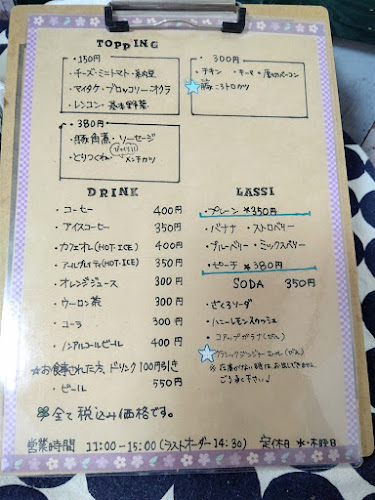 TOPPING
・150円
・チーズ・ミニトマト・
・マイタケ・ブロッコリー・オクラ
・レンコン・
・300円
・チキン ・キーマ・厚切ベーコン
・380円
・豚角煮・ソーセージ
・とりつくね ・メンチカツ
DRINK
・コーヒー 400円
・アイスコーヒー 350円
・カフェオレ(HOT・ICE) 400円
・アールグレイティ(HOT・ICE) 350円
・オレンジジュース 300円
・ウーロン茶 300円
・コーラ 300円
・ノンアルコールビール 400円
☆お食事された方、ドリンク100円引き
・ビール 550円
全て税込み価格です。
LASSI
・プレーン ★350円
・バナナ ・ストロベリー
・ブルーベリー・ミックスベリー
・ピーチ ★380円
SODA 350円
・ざくろソーダ
・ハニーレモンスカッシュ
・コアップガラナ(びん)
・クラシックジンジャーエール(びん)
※在庫がない時は、お出しできません
ごう承下さい♪
営業時間 11:00-15:00(ラストオーダー14:30) 定休日 ★木曜日